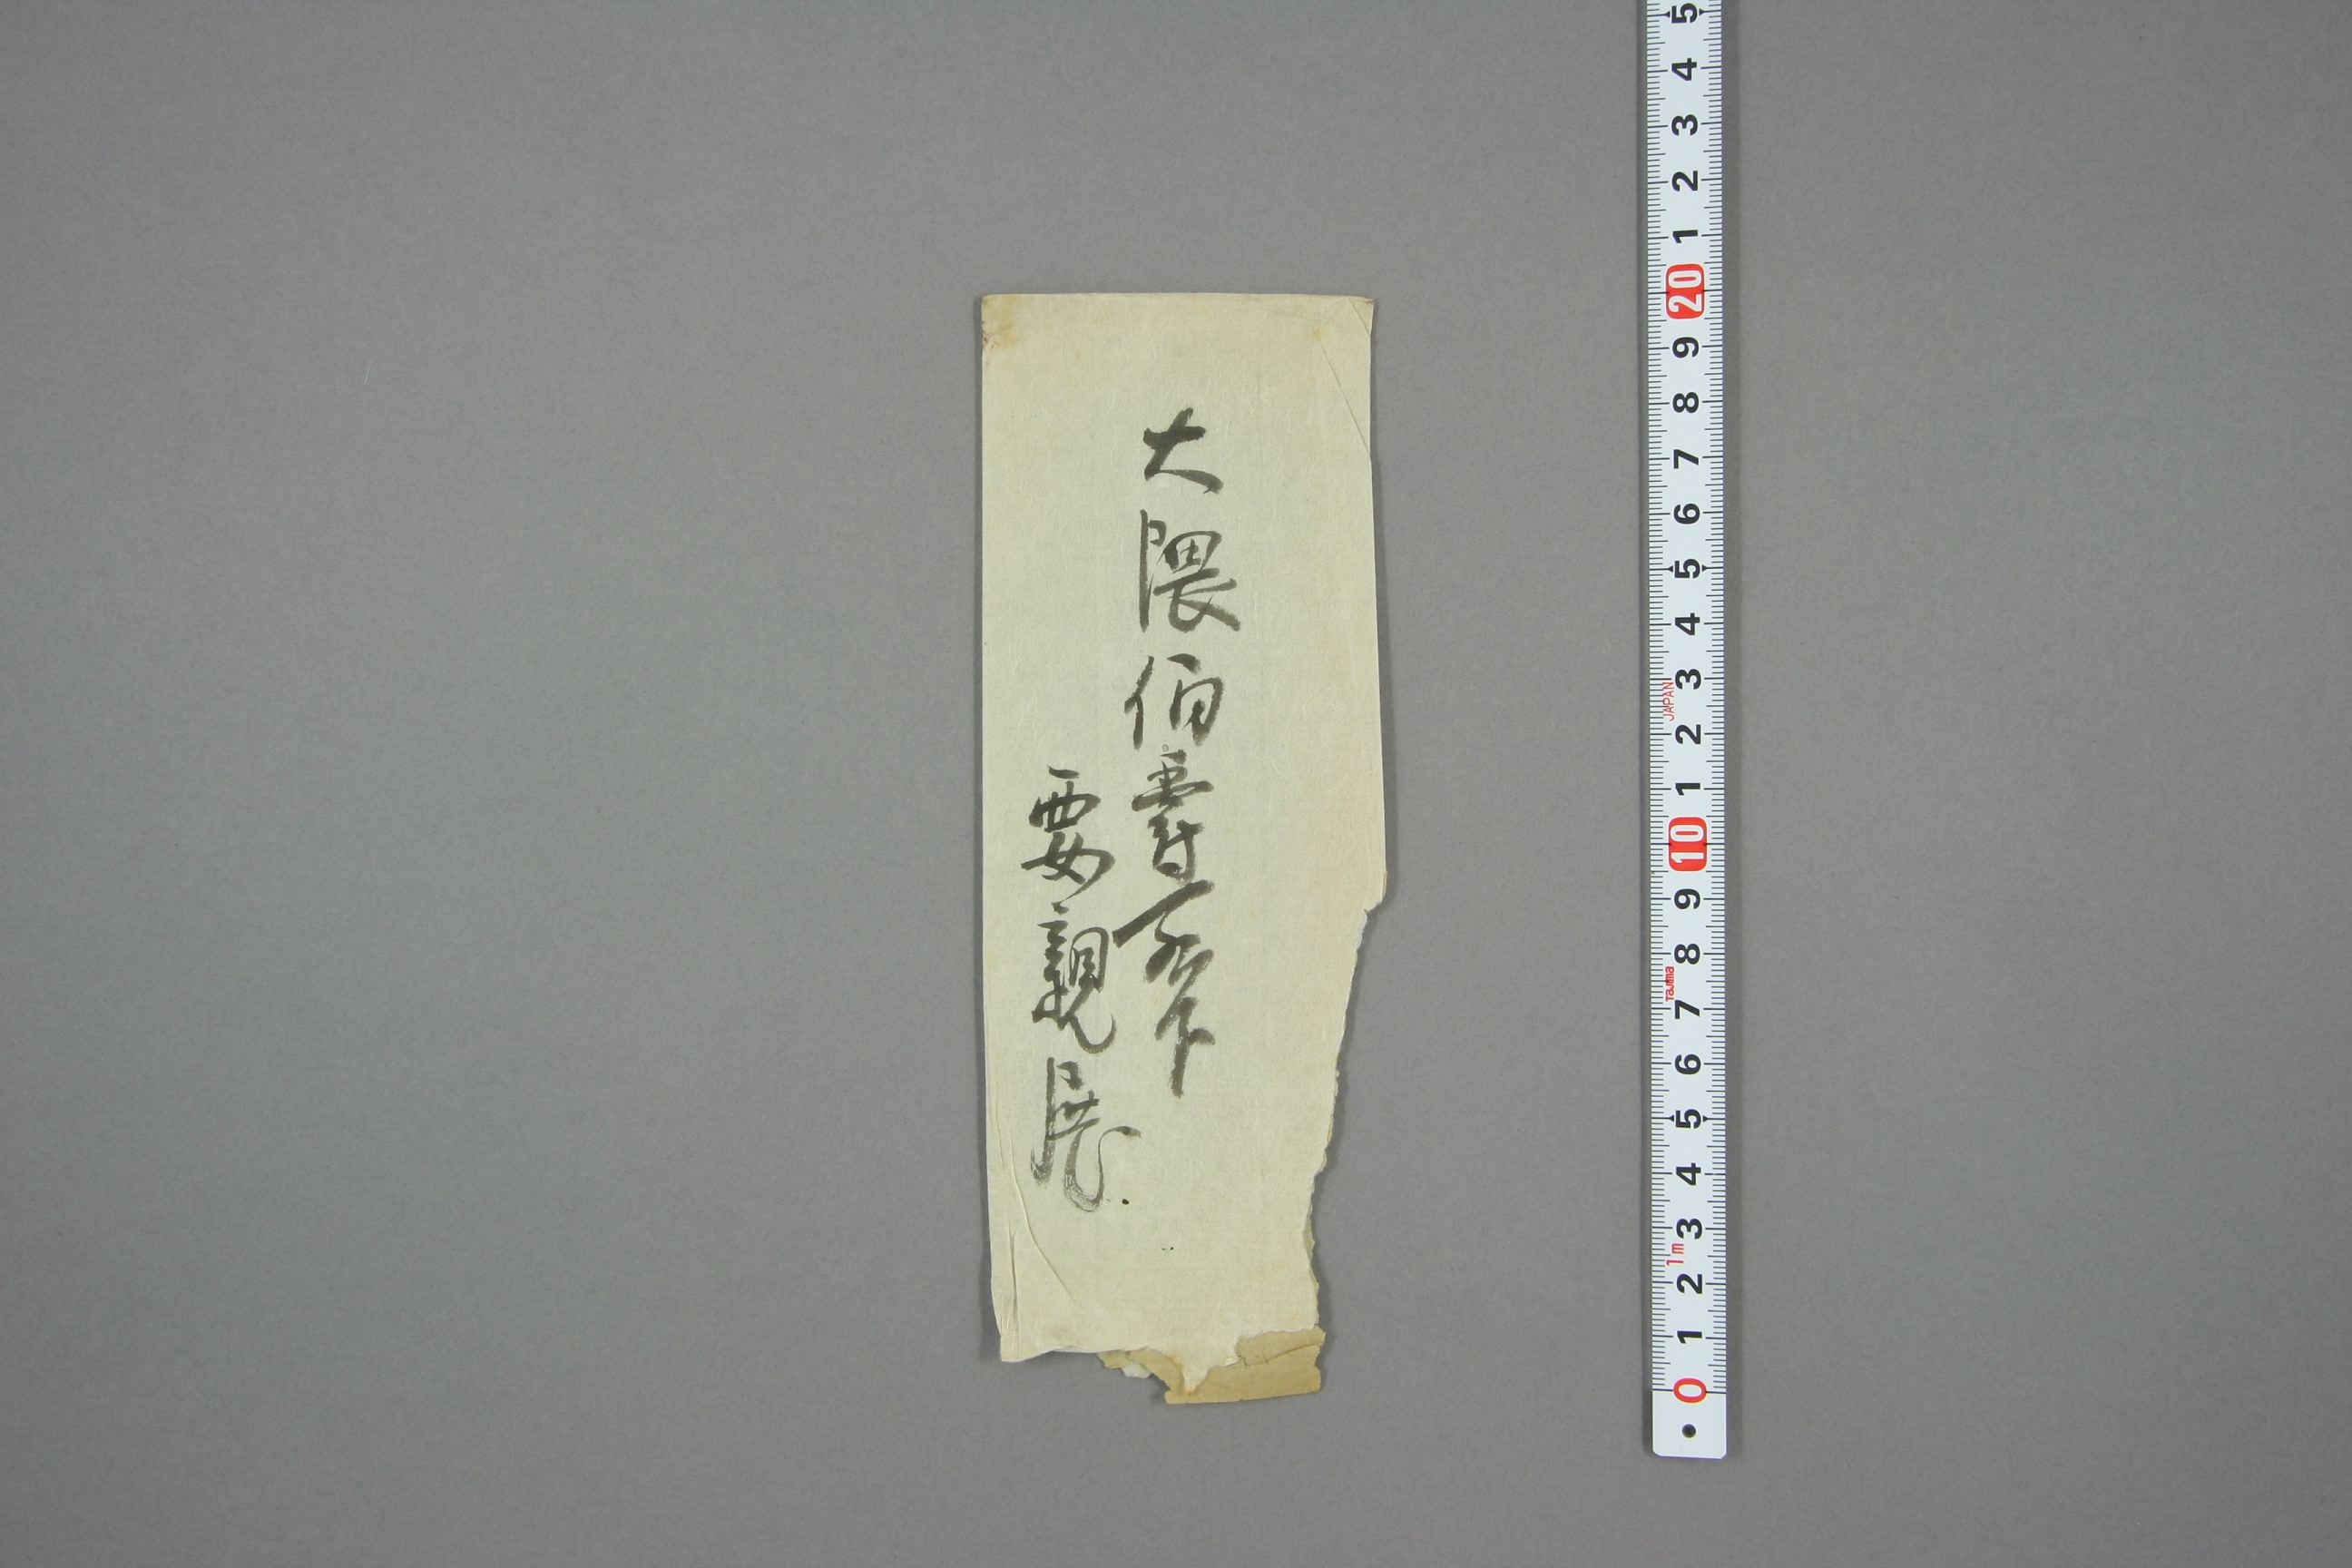 大隈伯爵閣下
要親展
5
4
3
2
1
20
9
8
7
6
5
4
3
JAPAN
2
1
10
9
8
Tajima
7
6
5
4
3
1m
2
1
0